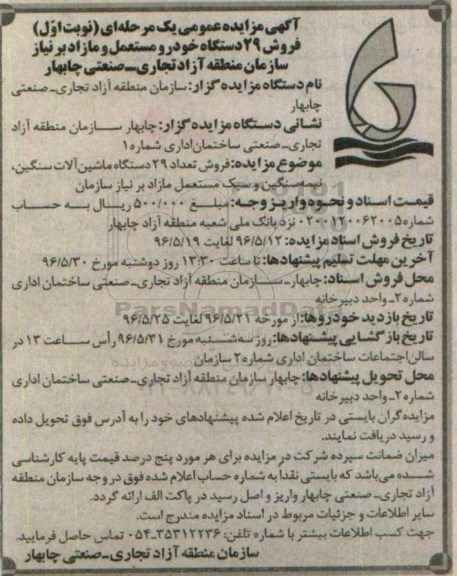 آگهی مزایده عمومی یک مرحله‌ای (نوبت اوّل)
فروش ۲۹ دستگاه خودرو مستعمل و مازاد بر نیاز
سازمان منطقه آزاد تجاری ـ صنعتی چابهار
نام دستگاه مزایده گزار: سازمان منطقه آزاد تجاری ـ صنعتی
چابهار
نشانی دستگاه مزایده گزار: چابهار سازمان منطقه آزاد
تجاری ـ صنعتی ساختمان اداری شماره ۱
موضوع مزایده: فروش تعداد ۲۹ دستگاه ماشین آلات سنگین،
نیمه سنگین و سبک مستعمل مازاد بر نیاز سازمان
قیمت اسناد و نحوه واریز وجه: مبلغ ۵۰۰/۰۰۰ ریال به حساب
شماره ۰۲۰۰۱۲۰۰۶۲۰۰۵ نزد بانک ملی شعبه منطقه آزاد چابهار
تاریخ فروش اسناد مزایده: ۹۶/۵/۱۲ لغایت ۹۶/۵/۱۹
آخرین مهلت تسلیم پیشنهادها: تا ساعت ۱۳:۳۰ روز دوشنبه مورخ ۹۶/۵/۳۰
محل فروش اسناد: چابهار ـ سازمان منطقه آزاد تجاری ـ صنعتی ساختمان اداری
شماره ۲ ـ واحد دبیرخانه
تاریخ بازدید خودروها: از مورخه ۹۶/۵/۲۱ لغایت ۹۶/۵/۲۵
تاریخ بازگشایی پیشنهادها: روز سه‌شنبه مورخ ۹۶/۵/۳۱ رأس ساعت ۱۳ در
سالن اجتماعات ساختمان اداری شماره ۲ سازمان
محل تحویل پیشنهادها: چابهار سازمان منطقه آزاد تجاری ـ صنعتی ساختمان اداری
شماره ۲ ـ واحد دبیرخانه
مزایده گران بایستی در تاریخ اعلام شده پیشنهادهای خود را به آدرس فوق تحویل داده
و رسید دریافت نمایند.
میزان ضمانت سپرده شرکت در مزایده برای هر مورد پنج درصد قیمت پایه کارشناسی
شده می‌باشد که بایستی نقدا به شماره حساب اعلام شده فوق در وجه سازمان منطقه
آزاد تجاری ـ صنعتی چابهار واریز و اصل رسید در پاکت الف ارائه گردد.
سایر اطلاعات و جزئیات مربوط در اسناد مزایده مندرج است.
جهت کسب اطلاعات بیشتر با شماره تلفن: ۳۵۳۱۲۲۳۶-۰۵۴ تماس حاصل فرمایید.
سازمان منطقه آزاد تجاری ـ صنعتی چابهار